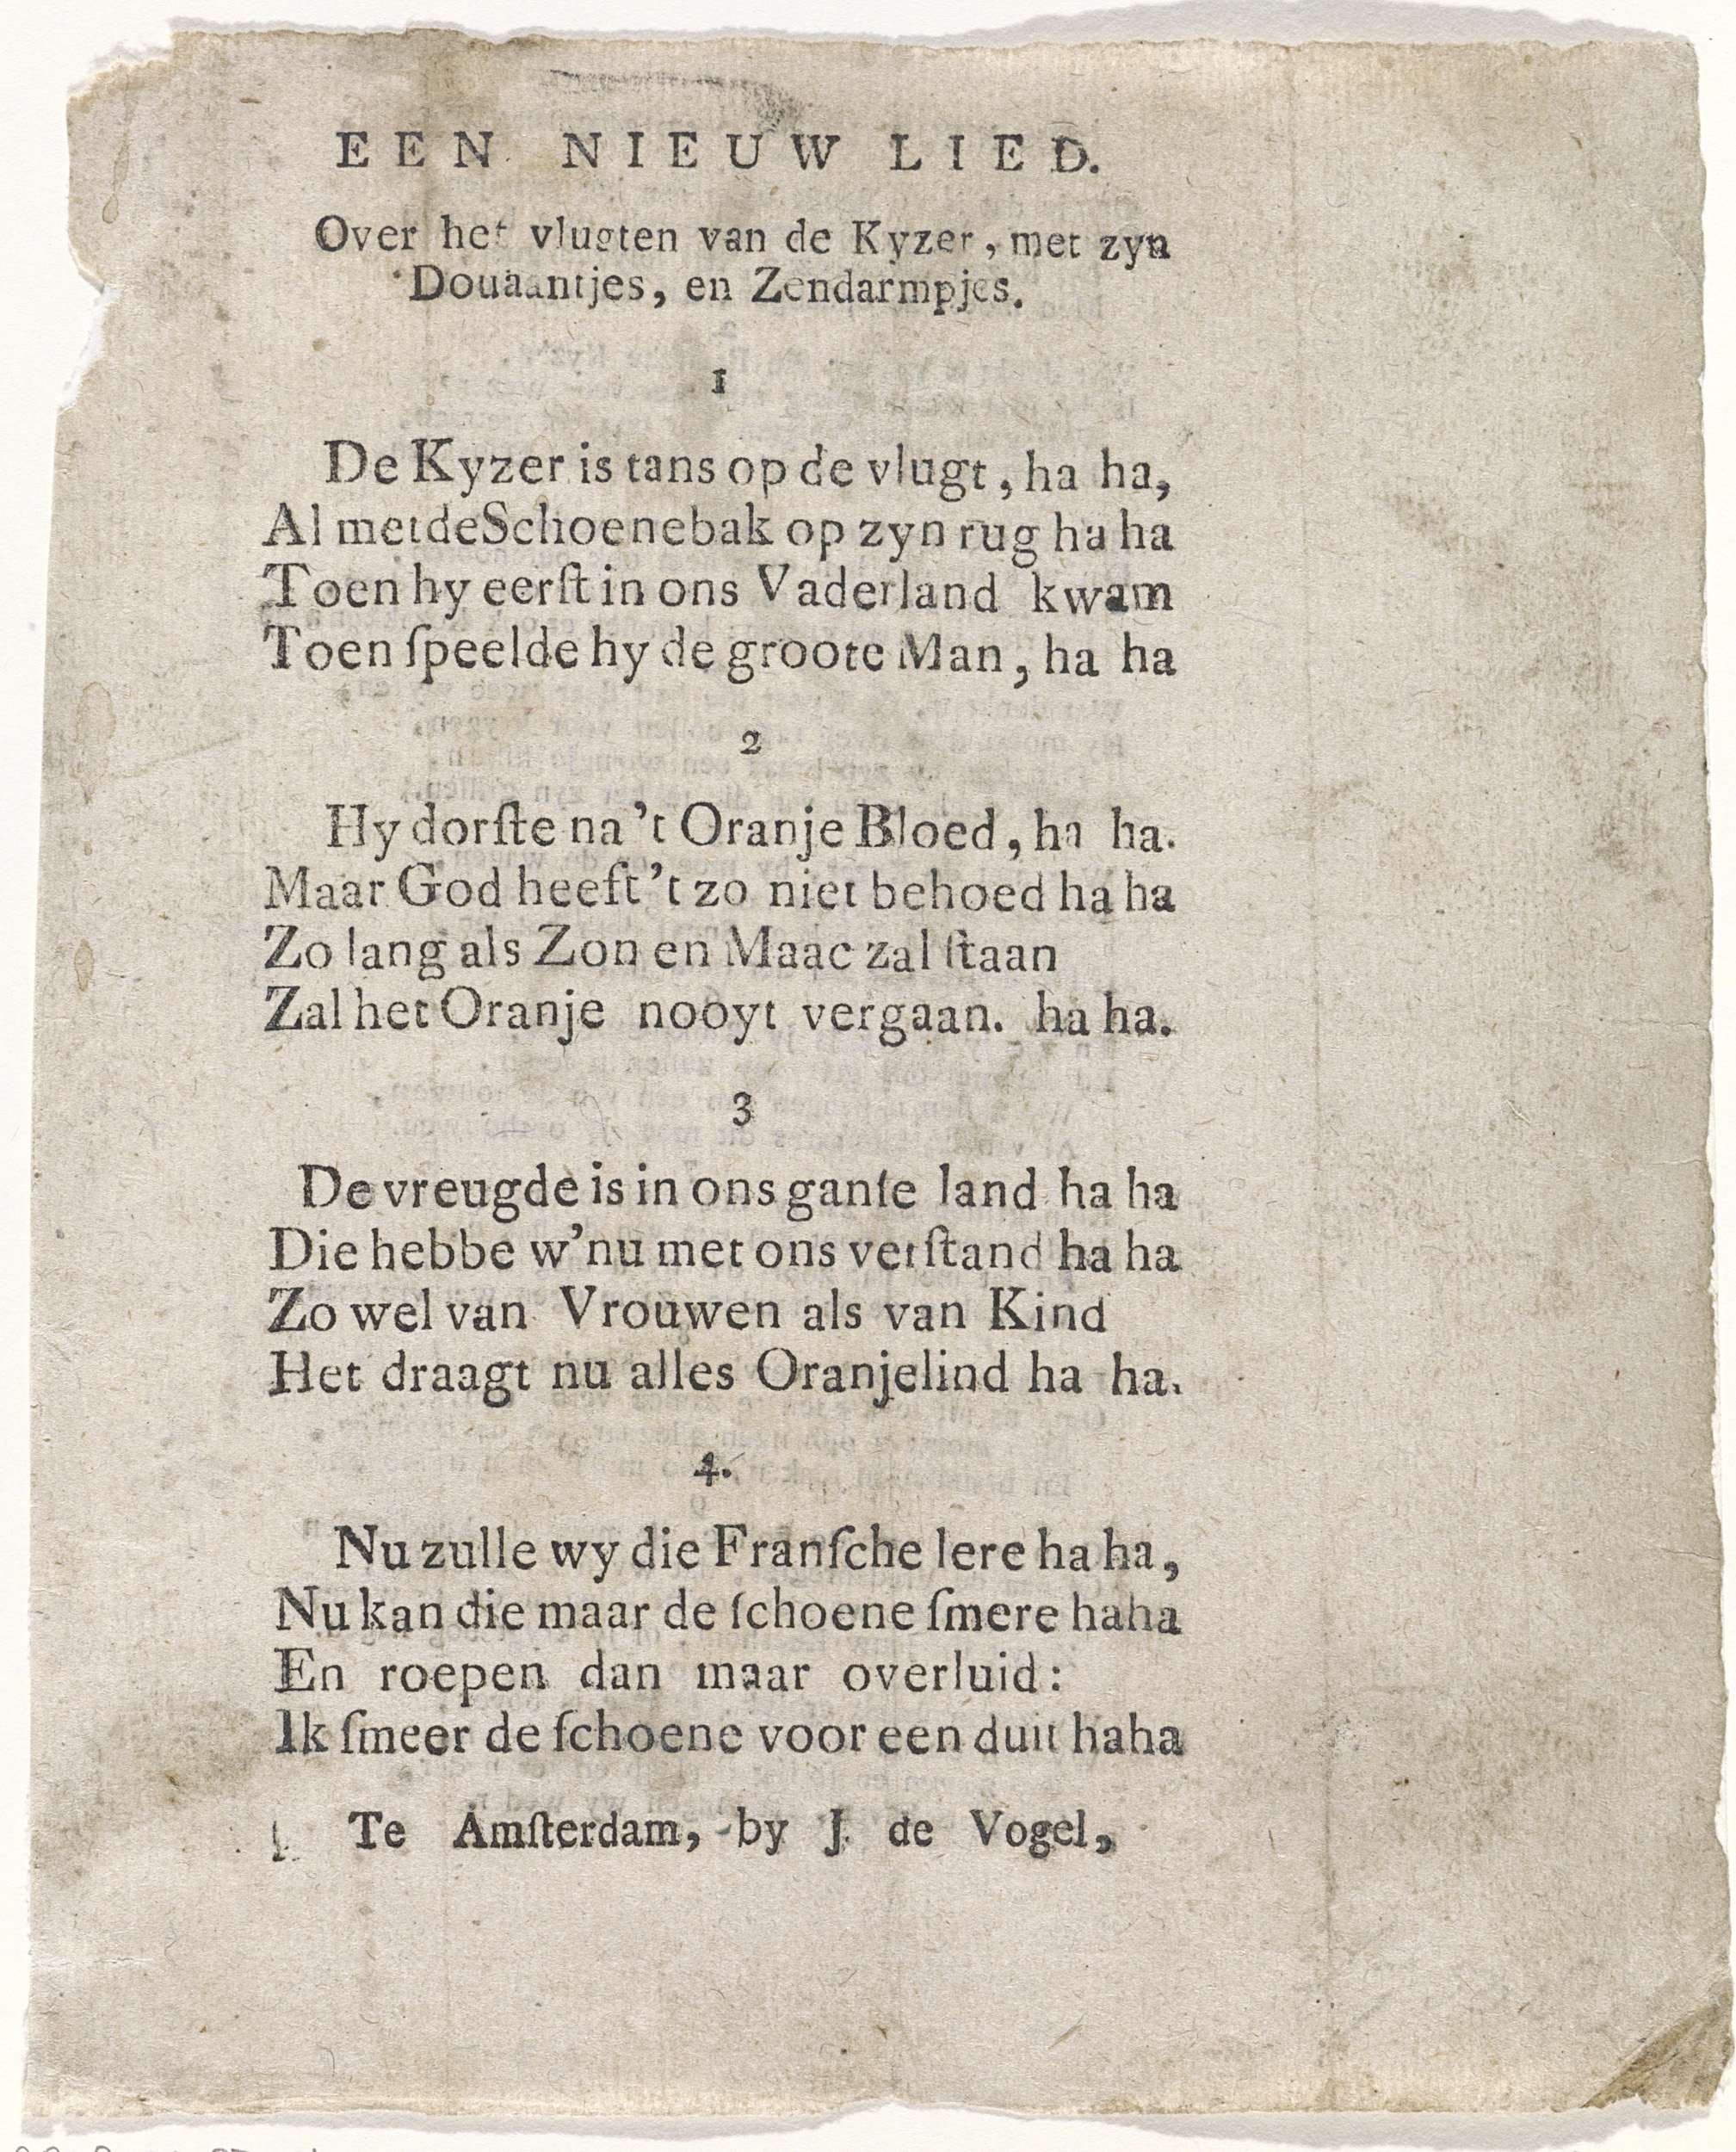 EEN NIEUW LIED.
Over het vlugten van de Kyzer, met zyn
Douäantjes, en Zendarmpjes.
1
De Kyzer is tans op de vlugt, ha ha,
Al met de Schoenebak op zyn rug ha ha
Toen hy eerſt in ons Vaderland kwam
Toen ſpeelde hy de groote Man, ha ha
2
Hy dorſte na 't Oranje Bloed, ha ha.
Maar God heeft 't zo niet behoed ha ha
Zo lang als Zon en Maac zal ſtaan
Zal het Oranje nooyt vergaan. ha ha.
3
De vreugde is in ons ganſe land ha ha
Die hebbe w'nu met ons verſtand ha ha
Zo wel van Vrouwen als van Kind
Het draagt nu alles Oranjelind ha ha.
4.
Nu zulle wy die Franſche lere ha ha,
Nu kan die maar de ſchoene ſmere haha
En roepen dan maar overluid:
Ik ſmeer de ſchoene voor een duit haha
Te Amſterdam, by J. de Vogel,